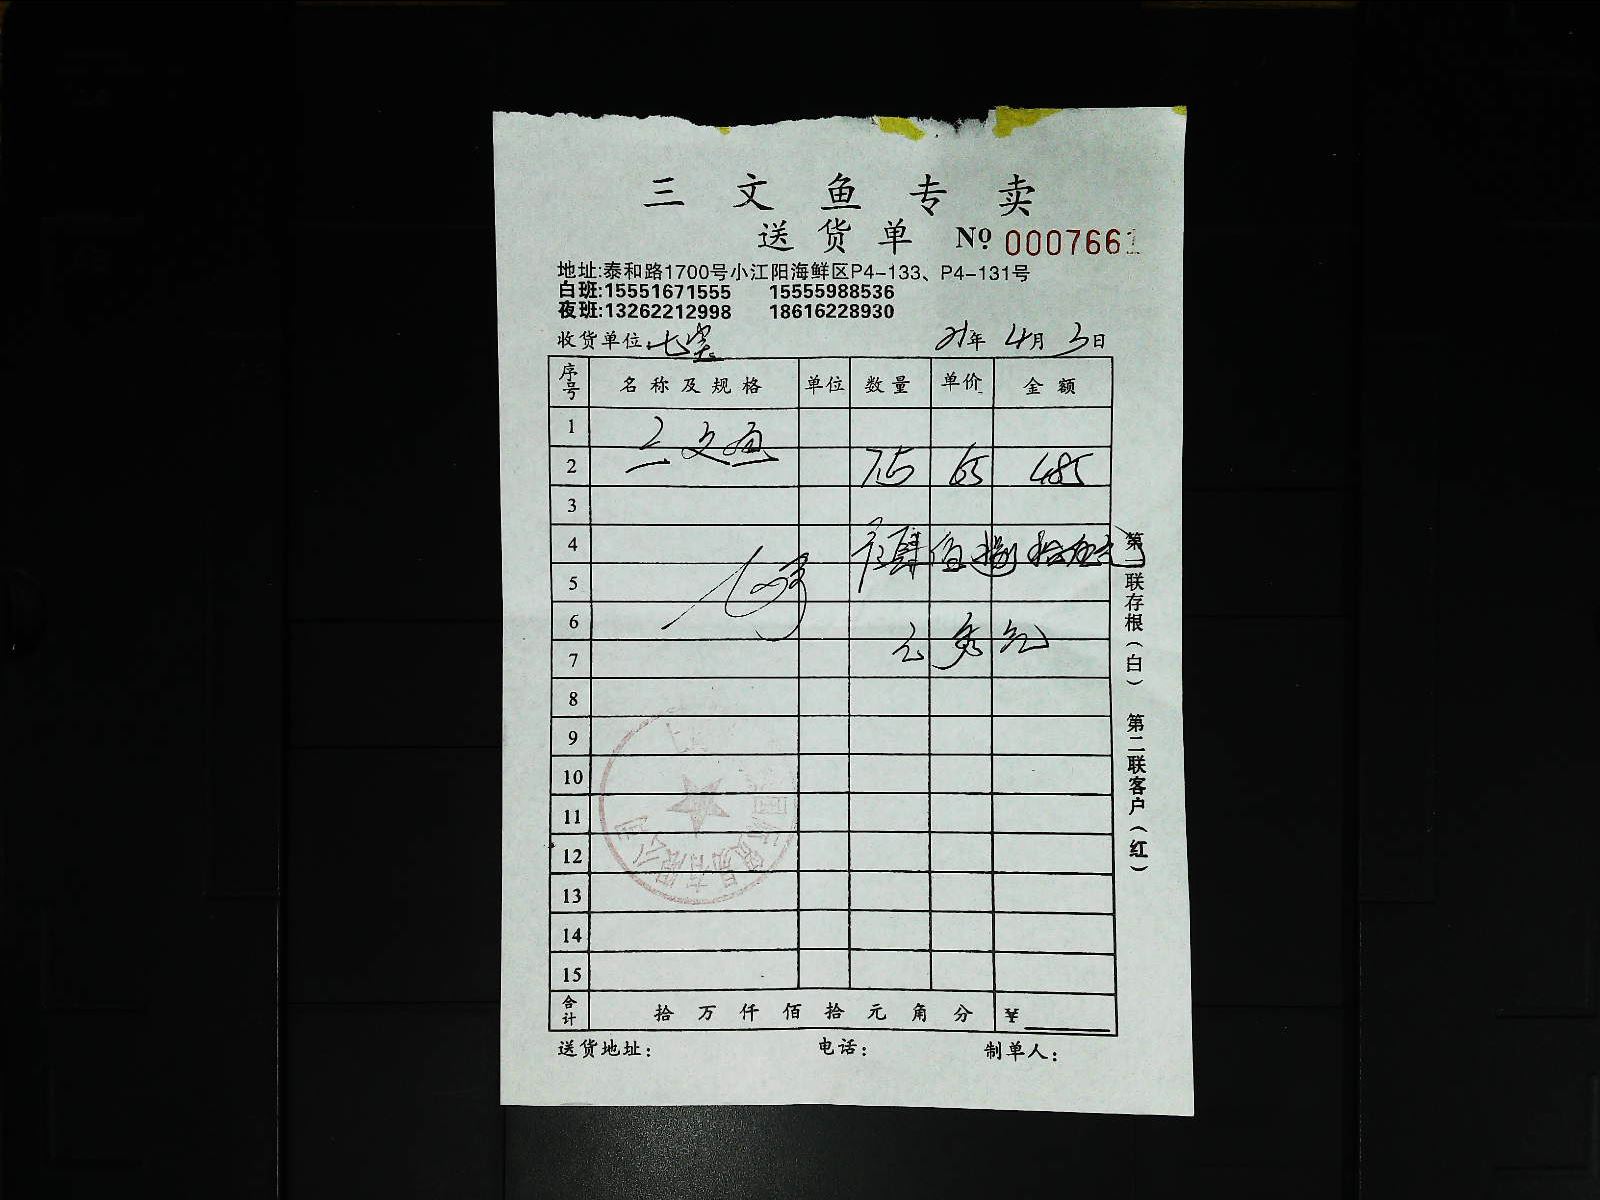 三文鱼专卖
送货单 № 0007661
地址:泰和路1700号小江阳海鲜区P4-133、P4-131号
白班:15551671555 15555988536
夜班:13262212998 18616228930
收货单位 七 21年 4月 3日
序号 名称及规格 单位 数量 单价 金额
1 三文鱼
2 7.5 65 485
3
4 肆佰捌拾伍元
5
6
7
8
9
10
11
12
13
14
15
合计 拾 万 仟 佰 拾 元 角 分 ¥
送货地址： 电话： 制单人：
第一联存根（白） 第二联客户（红）
贸易有限公司